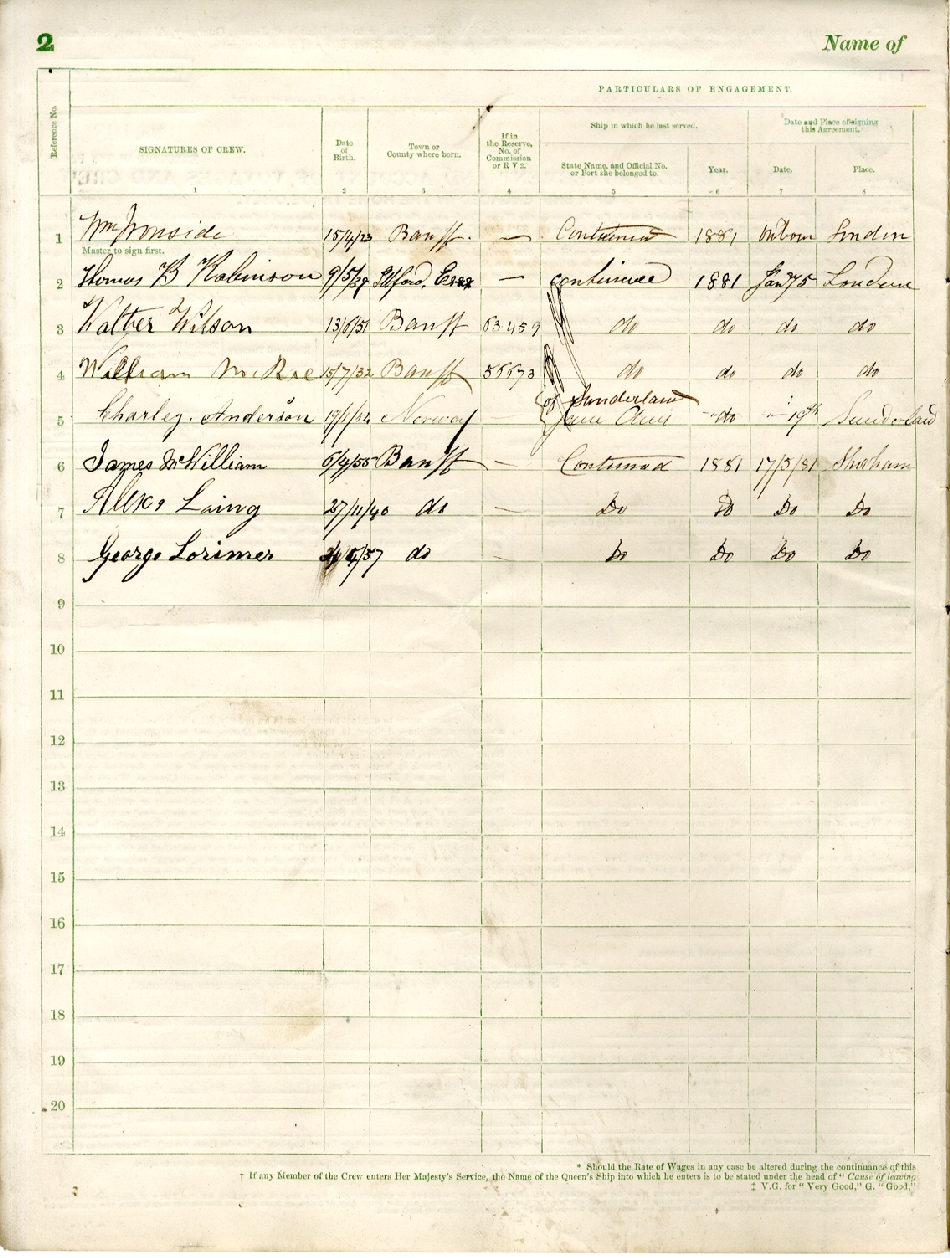 2 Name of
PARTICULARS OF ENGAGEMENT
Reference No.
SIGNATURES OF CREW.
Date of Birth.
Town or County where born.
If in the Reserve, No. of Commission or R V 2.
Ship in which he last served.
Date and Place of signing this Agreement.
State Name, and Official No. or Port she belonged to.
Year.
Date.
Place.
1 2 3 4 5 6 7 8
1 Wm Ironside 15/4/23 Banff. — Continued 1881 London
Master to sign first.
2 Thomas B Robinson Ilford. Essex — continued 1881 Jany 5 London
3 Walter Wilson 13/6/51 Banff 63459 do do do do
4 William McRae 15/7/32 Banff 56673 do do do do
of Sunderland
5 Charley. Anderson Norway Jane Ann do 19th Sunderland
6 James McWilliam Banff — Continued 1881 17/3/81
7 Alexr Laing 27/11/40 do — Do Do Do Do
8 George Lorimer do — Do Do Do Do
9
10
11
12
13
14
15
16
17
18
19
20
* Should the Rate of Wages in any case be altered during the continuance of this
† If any Member of the Crew enters Her Majesty's Service, the Name of the Queen's Ship into which he enters is to be stated under the head of "Cause of leaving
‡ V.G. for "Very Good," G. "Good,"